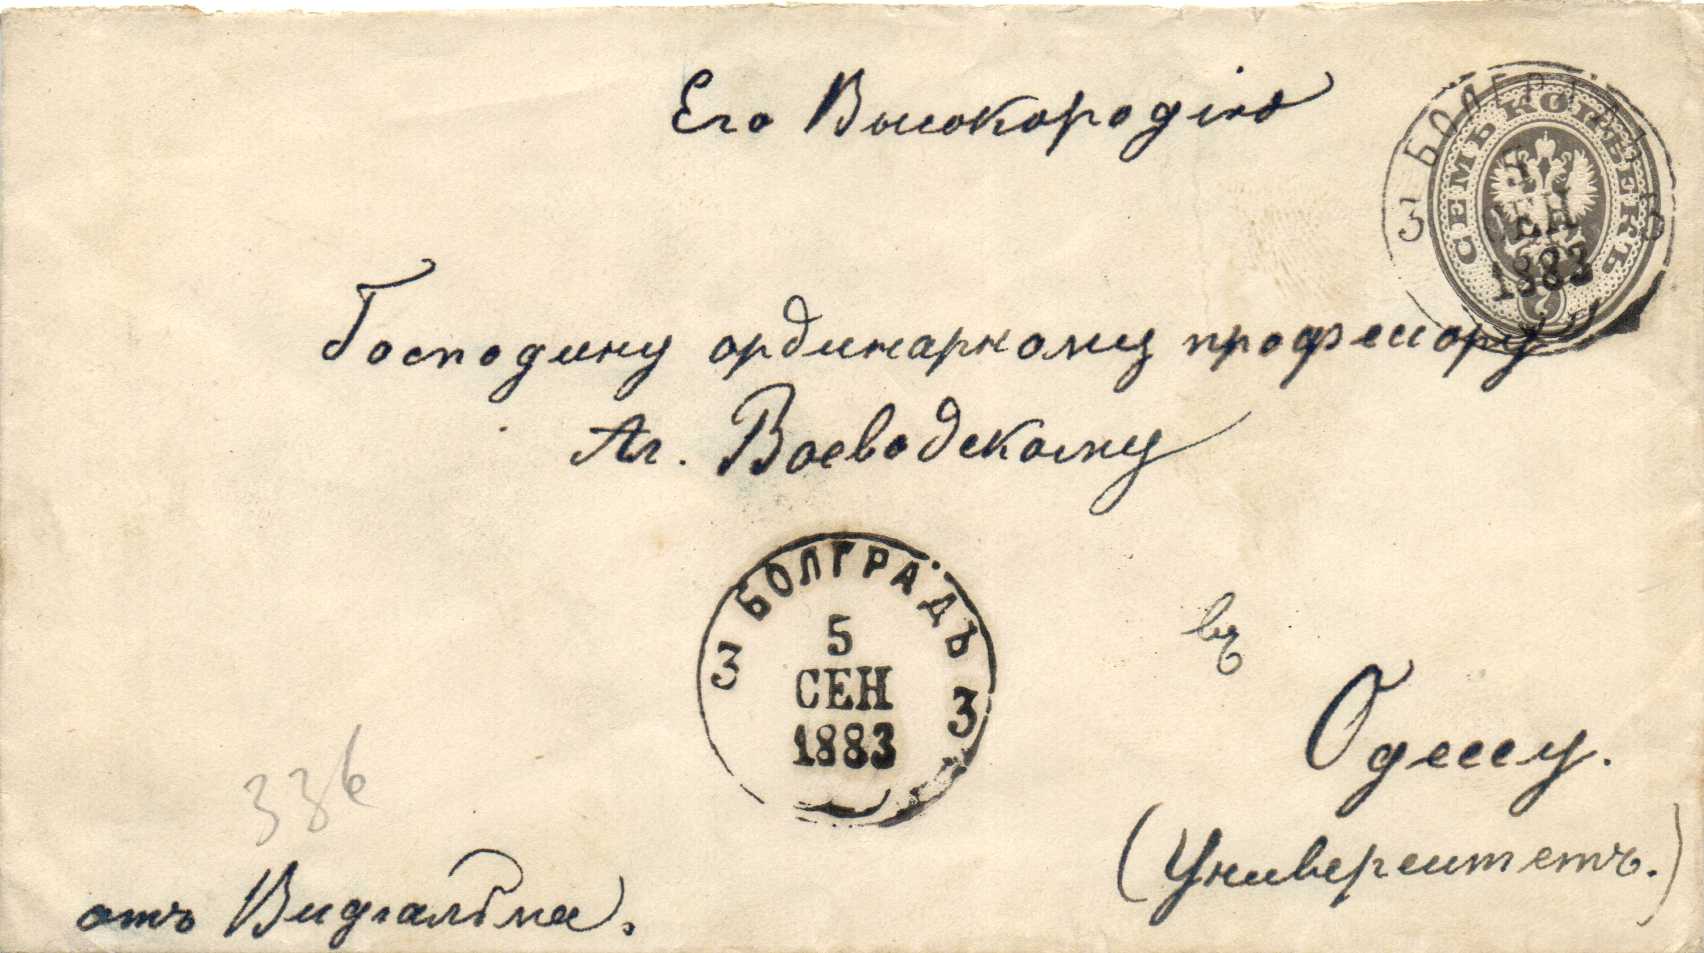 Его Высокородію
СЕМЬ КОПѢЕКЪ
7
БОЛГРАДЪ
3 3
5
СЕН
1883
Господину ординарному профессору
Ал. Воеводскому
БОЛГРАДЪ
3 3
5
СЕН
1883
въ
Одессу.
(Университетъ.)
336
отъ Видгальма.